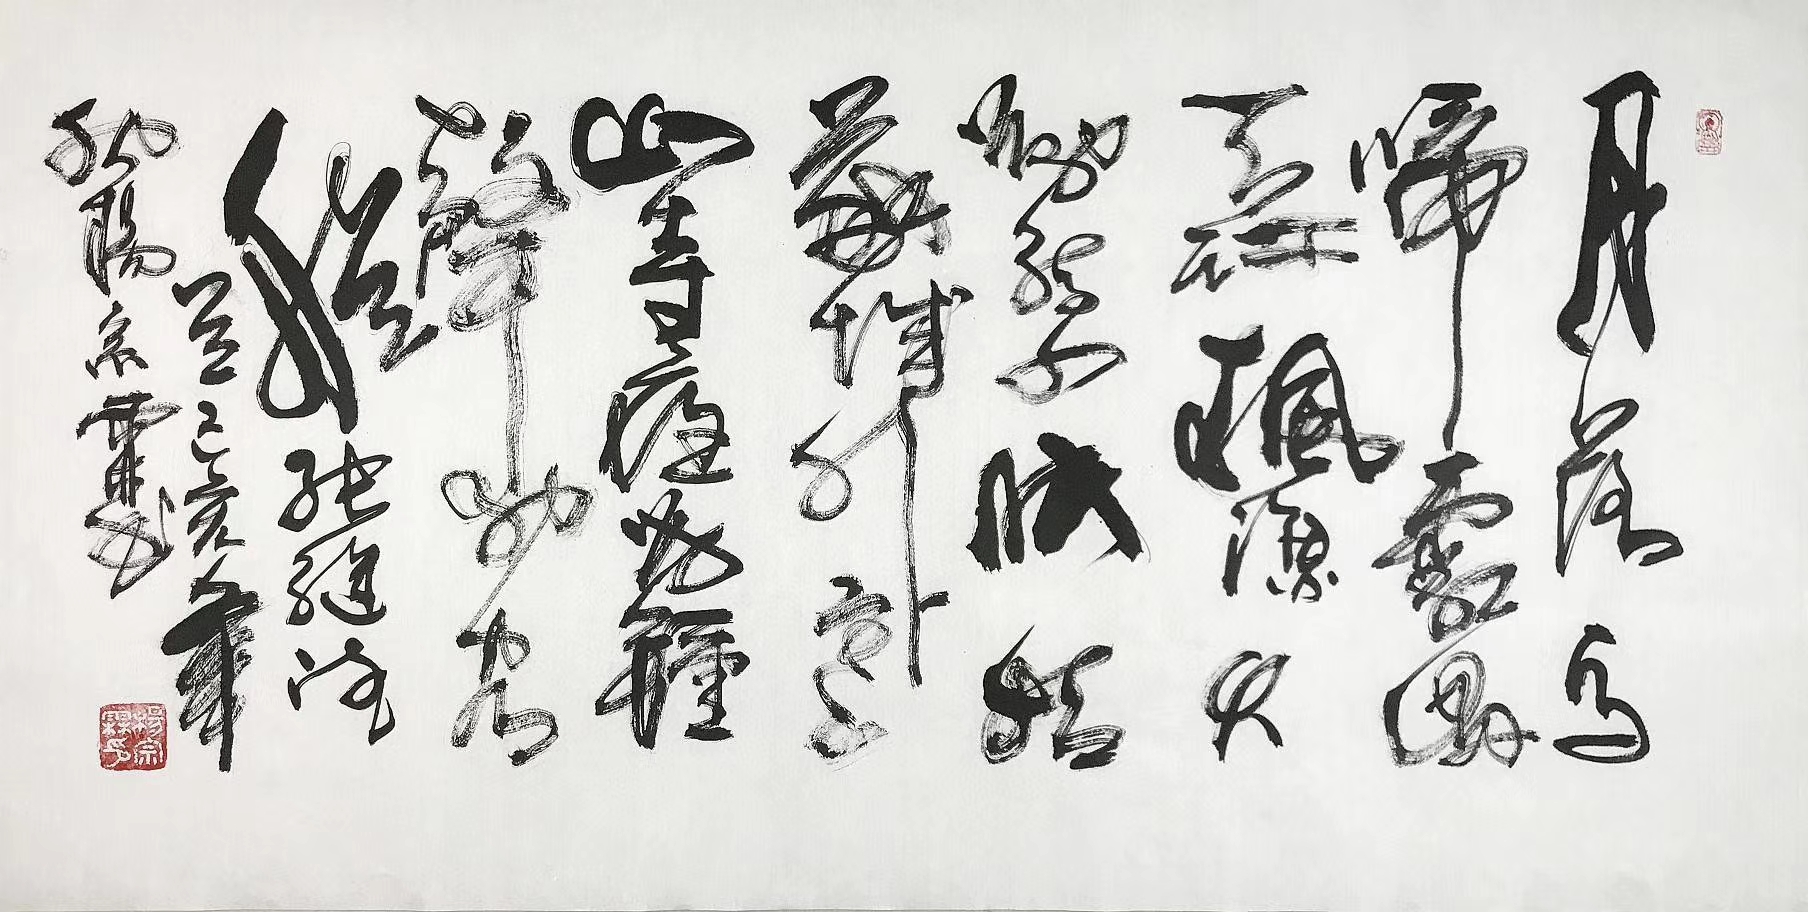 月落烏
啼霜滿
天江楓漁火
對愁眠姑
蘇城外寒
山寺夜半鐘
聲到客
船張繼詩
己亥年
楊宗霖書
楊宗霖印